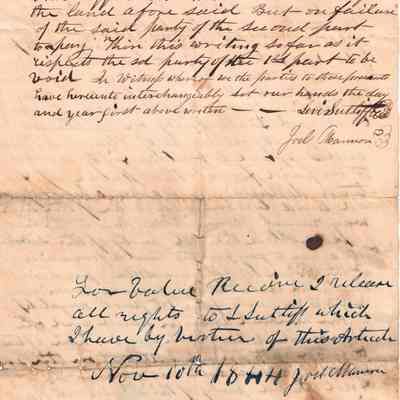 the land afore said But on failure
of the said party of the second part
to pay Then this writing so far as it
respects the sd party of the 1st part to be
void In Witness whereof we the parties to these presents
have hereunto interchangeably set our hands the day
and year first above written — — Levi Sutliff
Joel Channon
For Value Receive I release
all rights to L Sutliff which
I have by virtue of this Article
Nov 10th 1844 Joel Channon